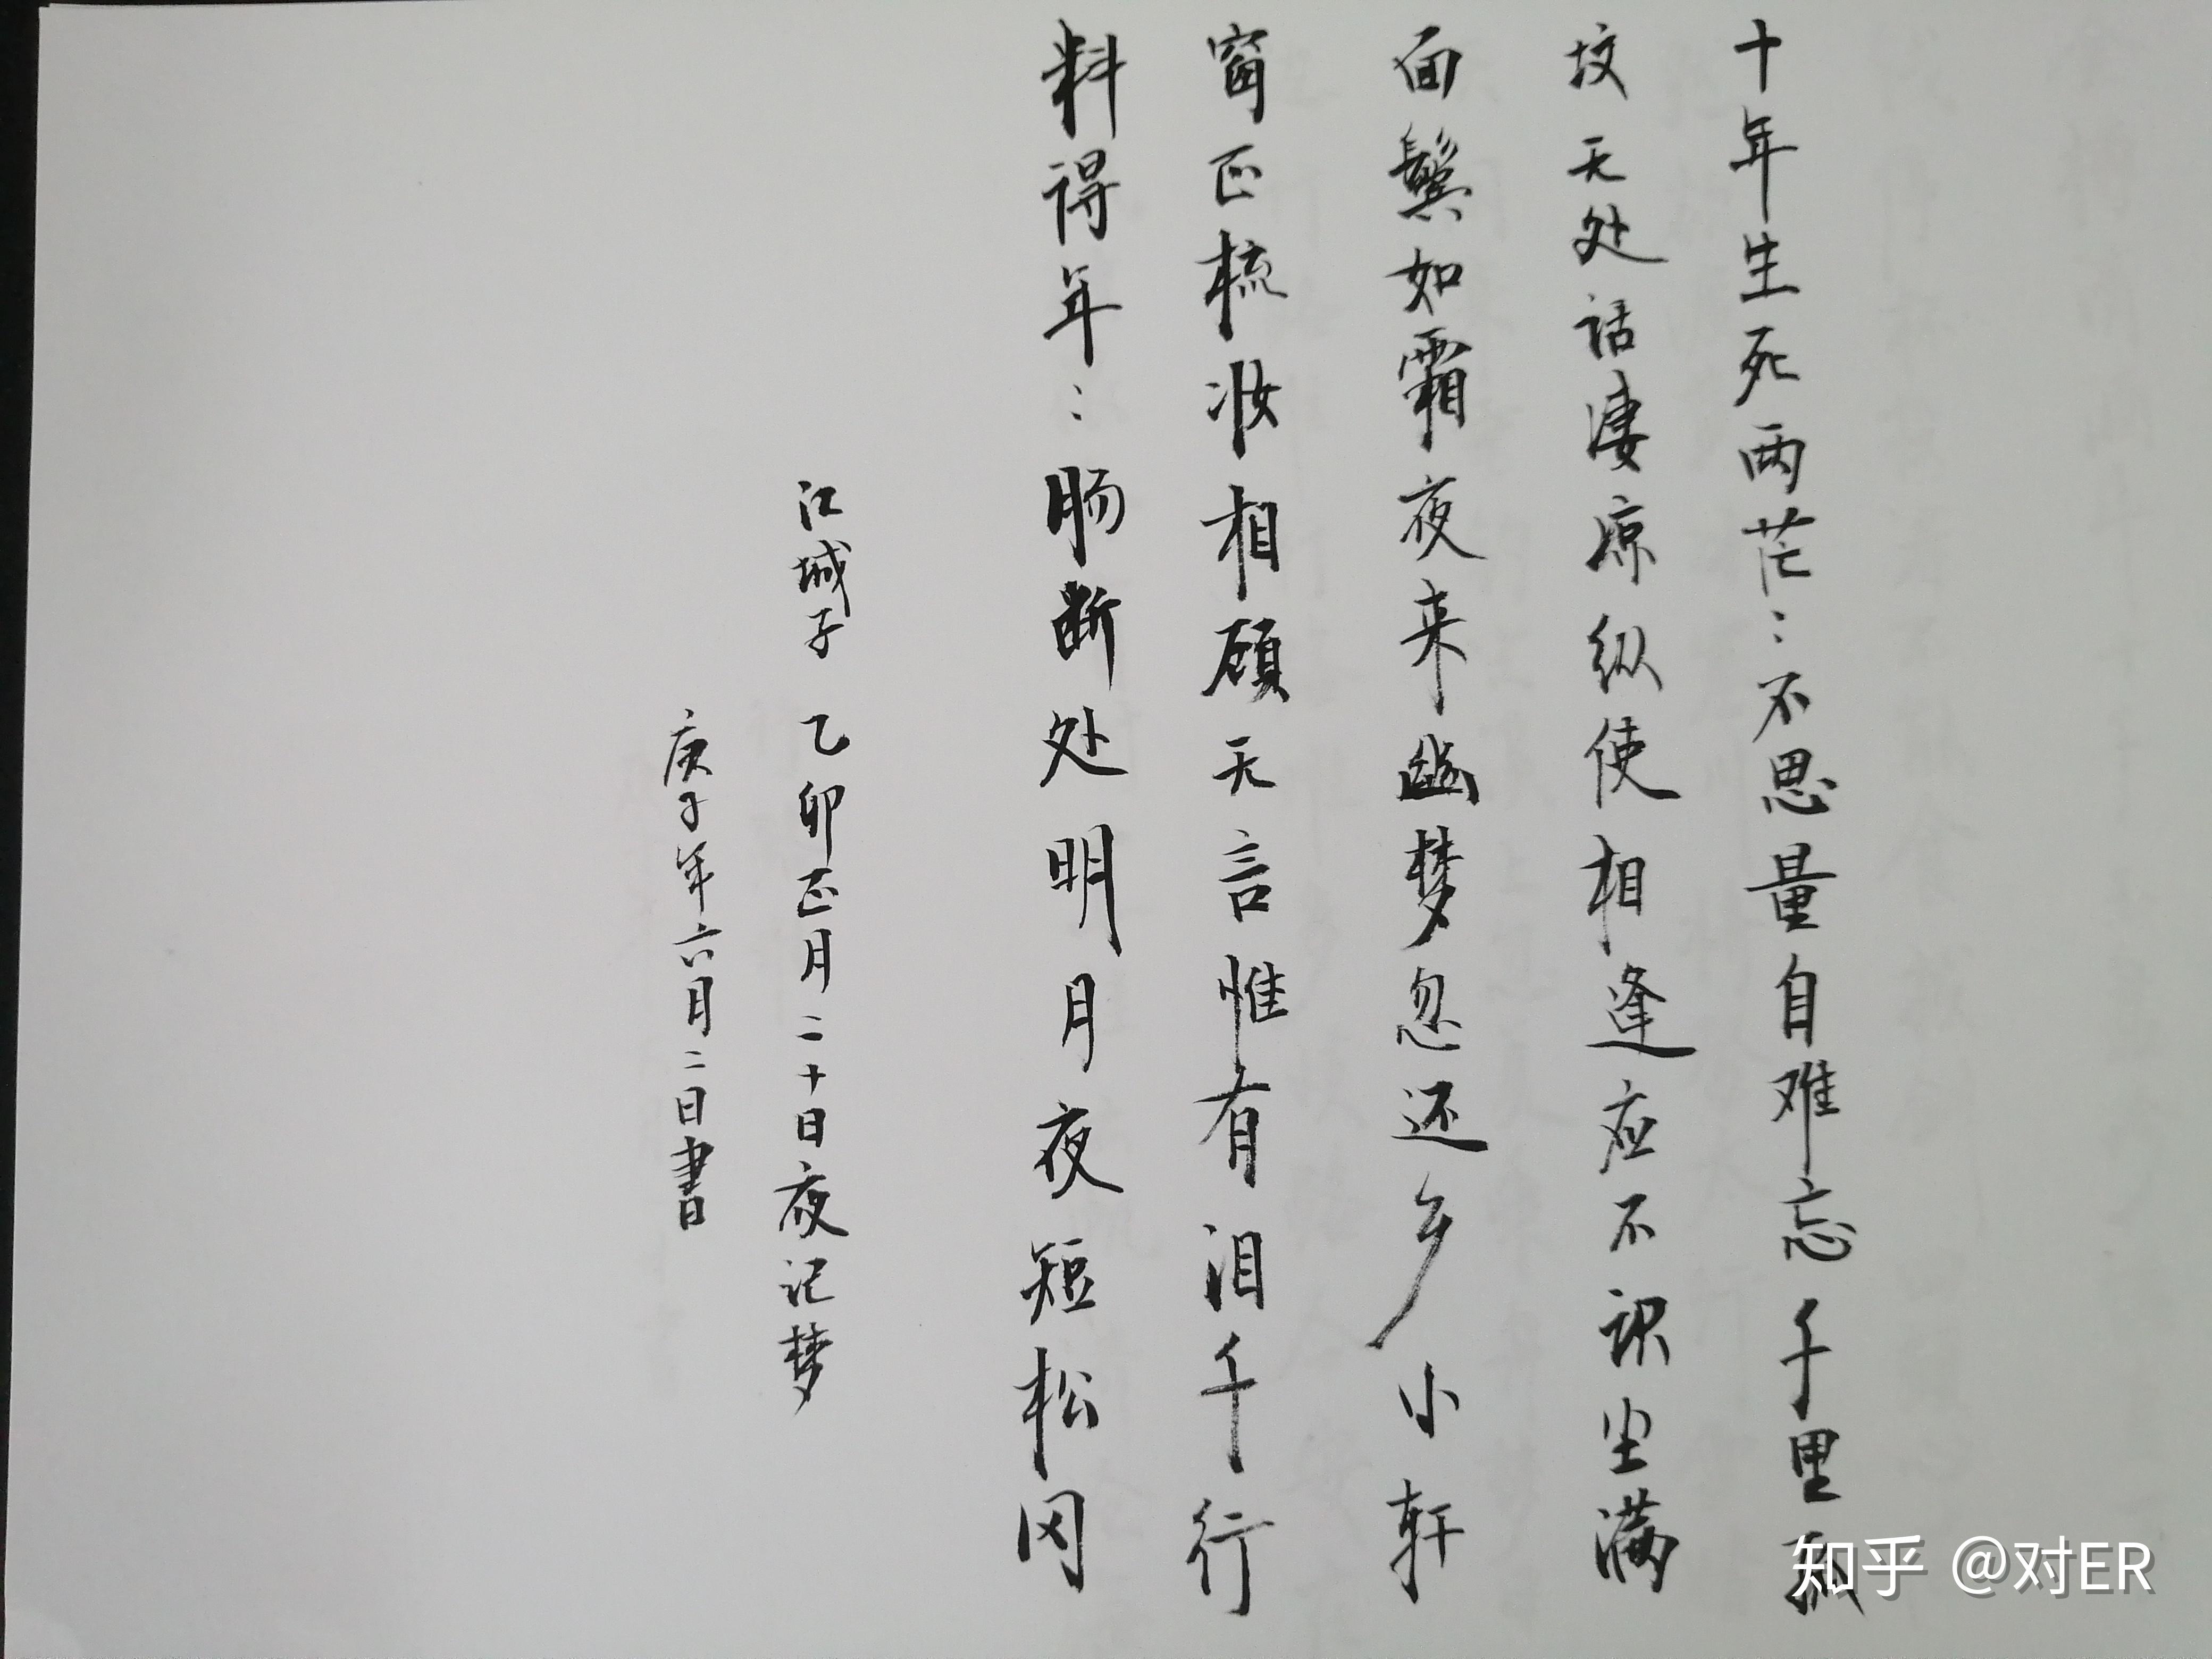 十年生死两茫：不思量自难忘千里孤
坟无处话凄凉纵使相逢应不识尘满
面鬓如霜夜来幽梦忽还乡小轩
窗正梳妆相顾无言惟有泪千行
料得年：肠断处明月夜短松冈
江城子 乙卯正月二十日夜记梦
庚子年六月二日書
知乎 @对ER